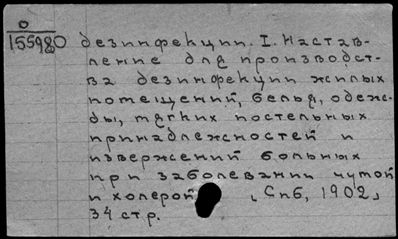 0
155980 дезинфекции. I. Настав-
ление для производст-
ва дезинфекции жилых
помещений, белья, одеж-
ды, мягких постельных
принадлежностей и
извержений больных
при заболевании чумой
и холерой „Спб, 1902„
34 стр.